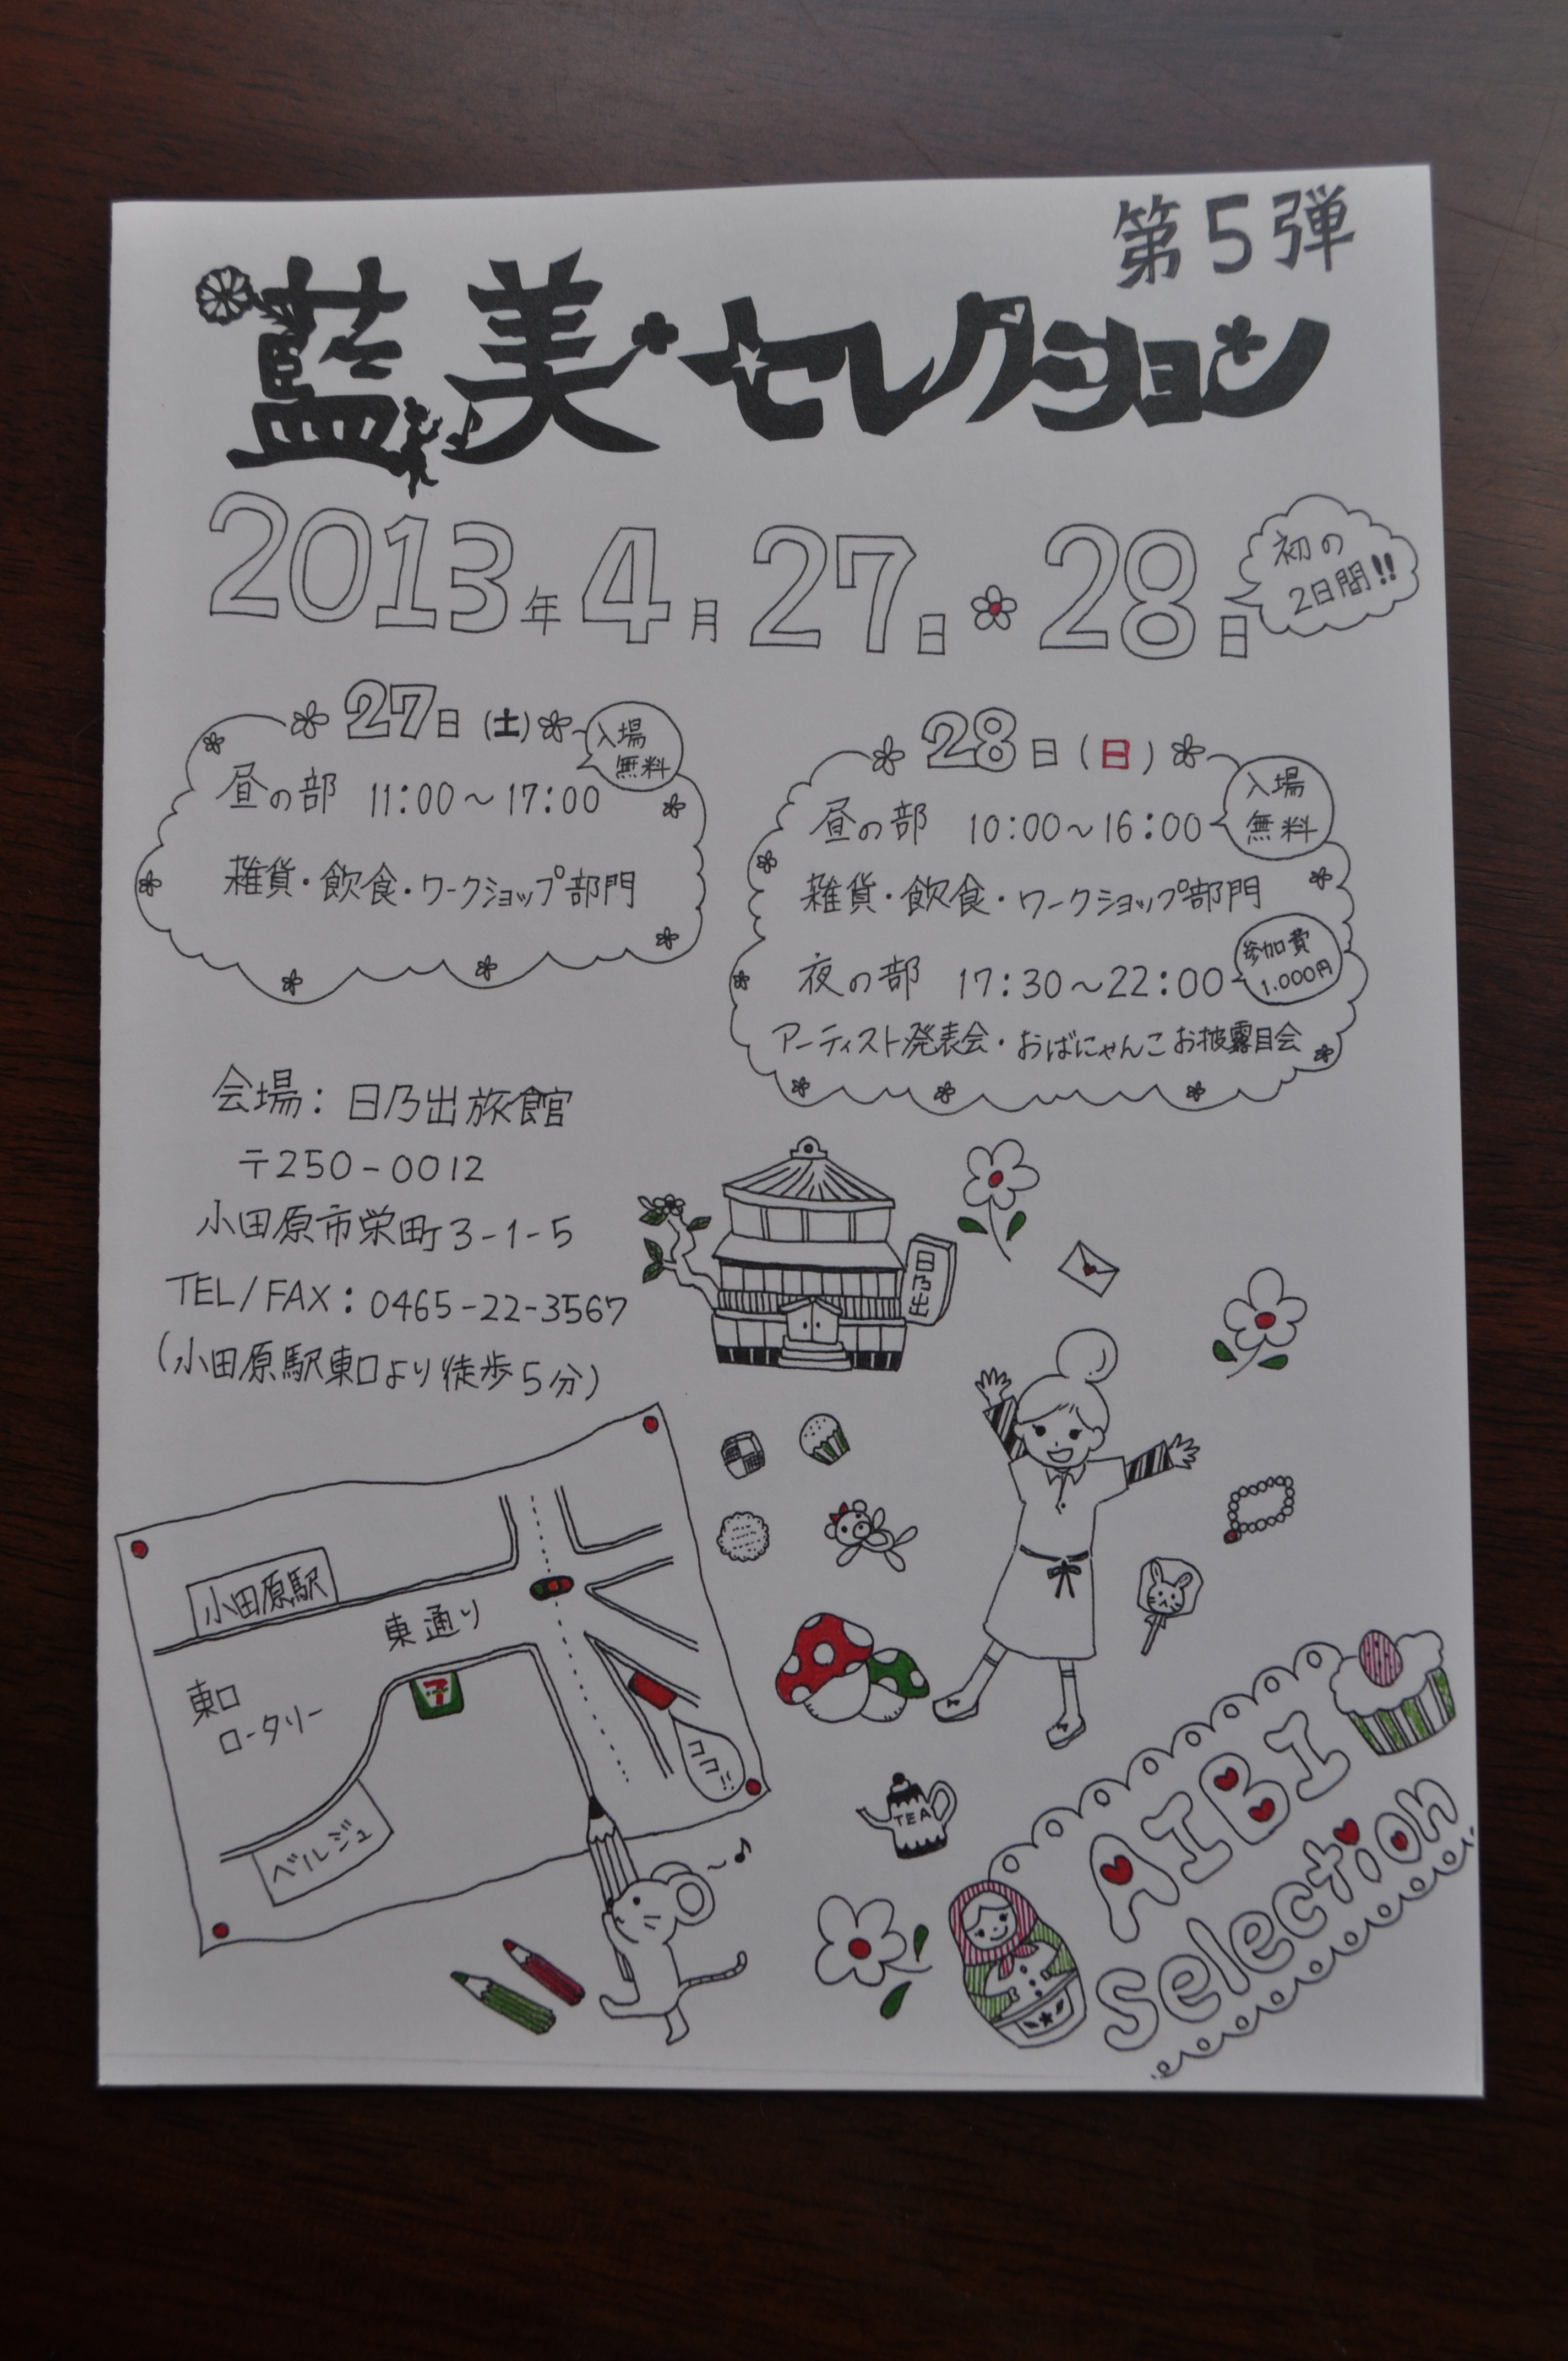 第5弾
藍美・セレクション
2013年4月27日 28日
初の
2日間!!
27日(土)
入場
無料
昼の部 11:00～17:00
雑貨・飲食・ワークショップ部門
28日(日)
入場
無料
昼の部 10:00～16:00
雑貨・飲食・ワークショップ部門
夜の部 17:30～22:00
参加費
1,000円
アーティスト発表会・おばにゃんこお披露目会
会場：日乃出旅館
〒250-0012
小田原市栄町3-1-5
TEL/FAX：0465-22-3567
(小田原駅東口より徒歩5分)
日乃出
小田原駅
東通り
7
東口
ロータリー
ココ!!
ベルジュ
TEA
AIBI
Selection